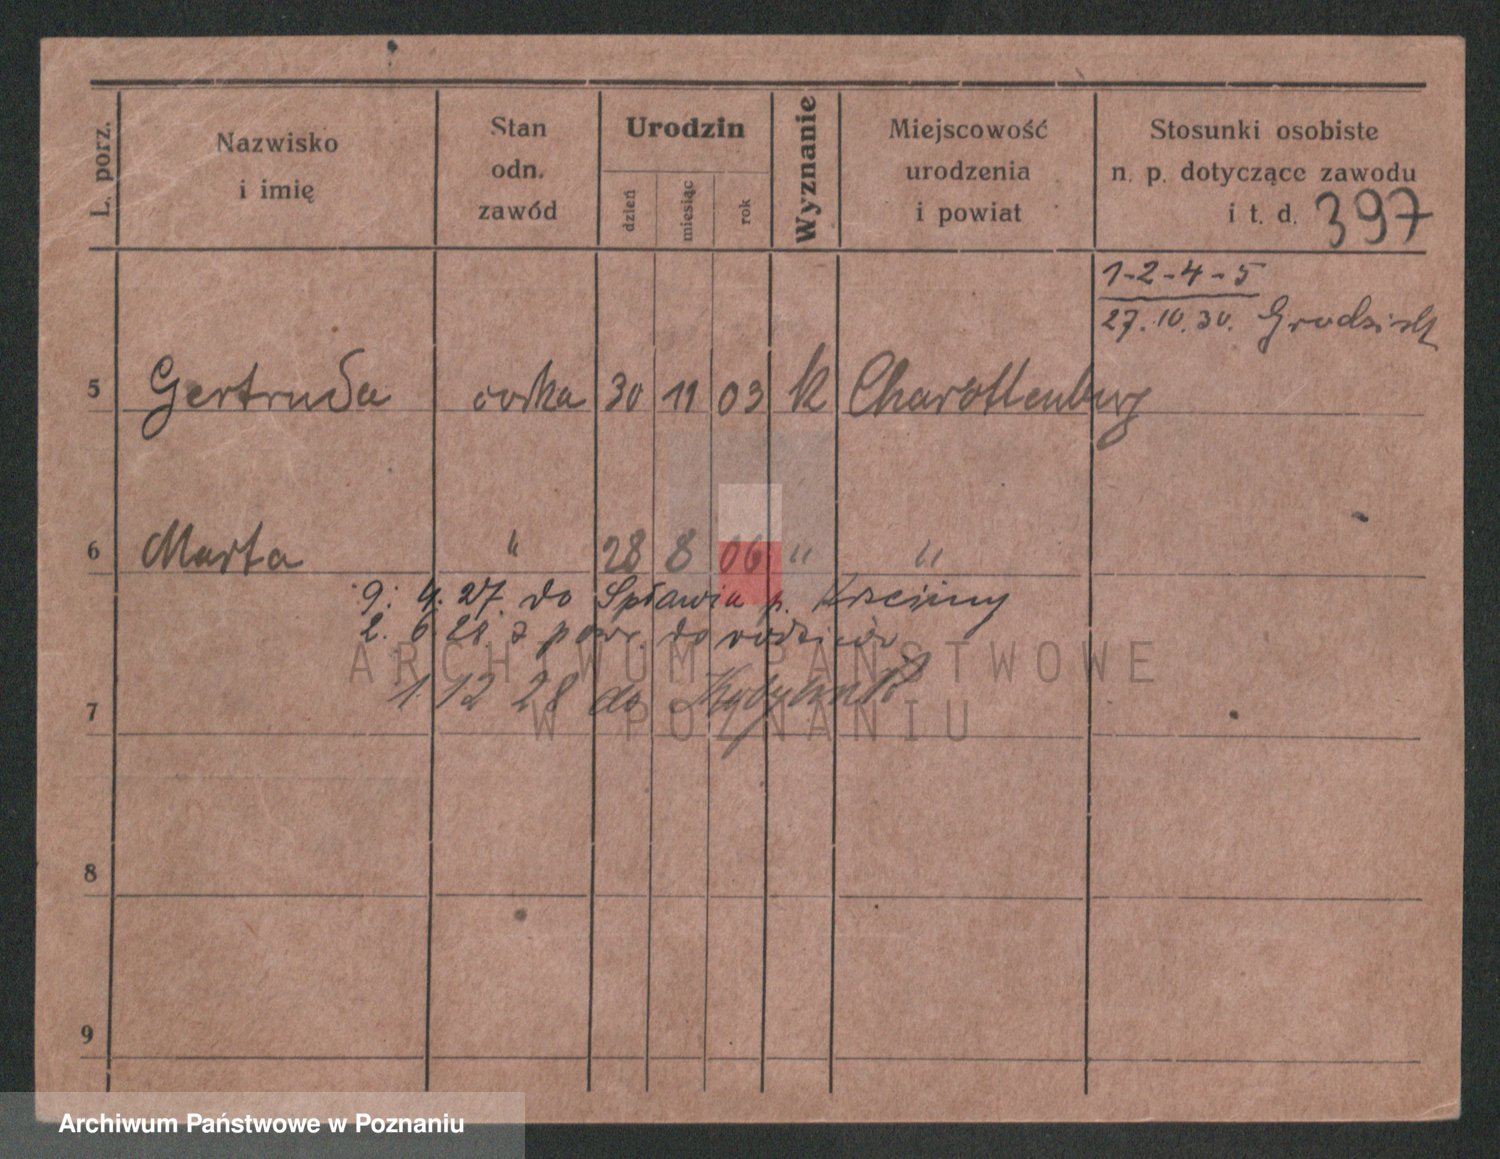 L. porz.
Nazwisko
i imię
Stan
odn.
zawód
Urodzin
dzień
miesiąc
rok
Wyznanie
Miejscowość
urodzenia
i powiat
Stosunki osobiste
n. p. dotyczące zawodu
i t. d. 397
1-2-4-5
27.10.30. Grodzisk
5 Gertruda córka 30 11 03 k Charottenburg
6 Marta " 28 8 06 " "
9. 4. 27. do Spławia p.
2. 6. 28 z pow. do rodziców
1. 12 28 do
7
8
9
ARCHIWUM PAŃSTWOWE
W POZNANIU
Archiwum Państwowe w Poznaniu